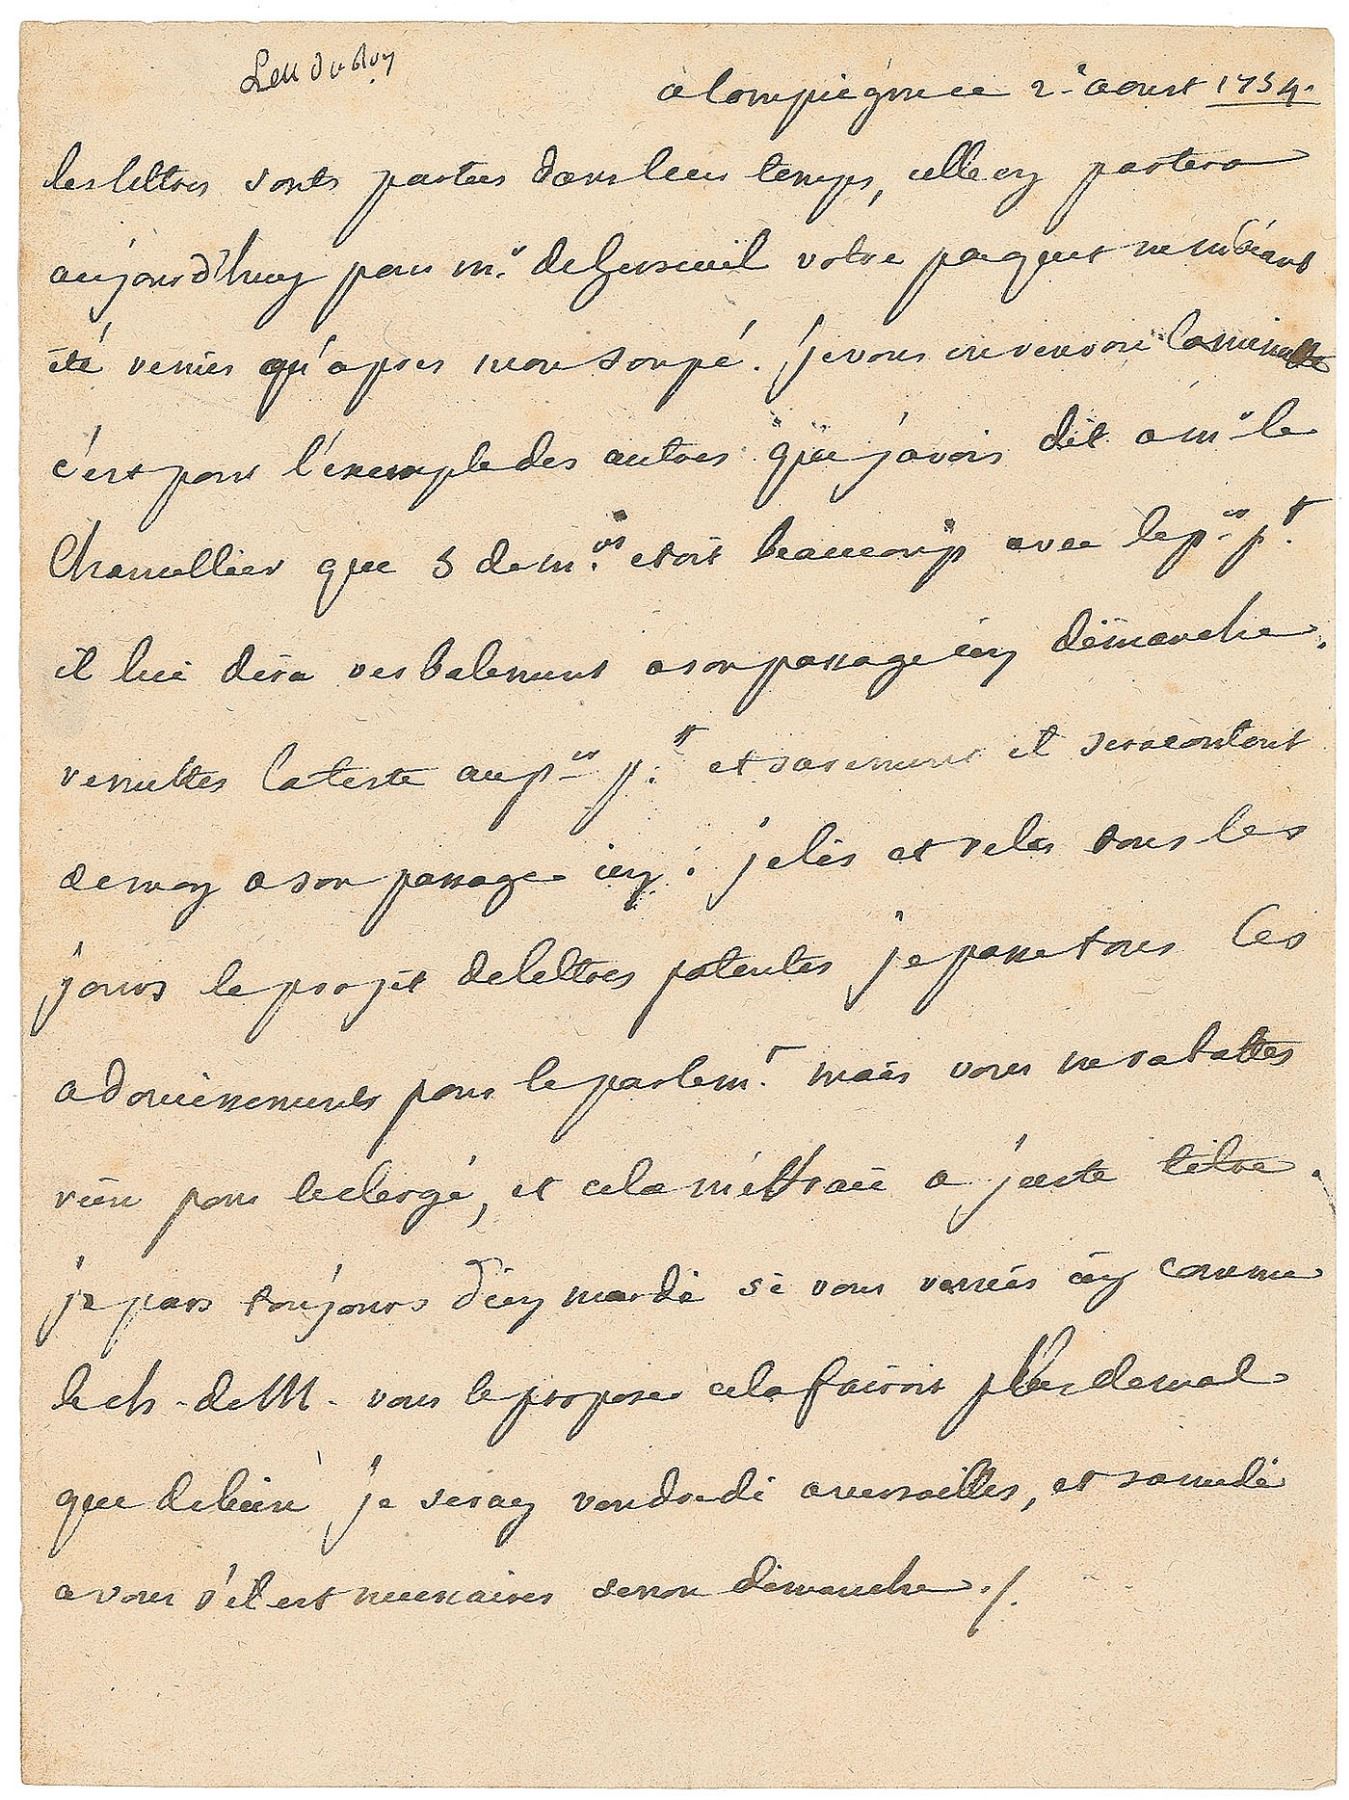 Lett du Roy
a Compiegne ce 2.e aoust 1754.
les lettres sonts parties dans leur temps, celle cy partera
aujourd'huy par mr. de Gerseuil votre paquet ne m'éiant
été venus qu'apres mon soupé. je vous en renvoie la minutte
c'est pour l'exemple des autres que j'avois dit a mr le
Chancellier que 5 de mrs. etoit beaucoup avec le per pt.
il lui dira verbalement a son passage icy dimanche.
remettes la teste au per pt. et surement il sera content
de moy a son passage icy. je lis et relis tous les
jours le projet de lettres patentes je passe tous ces
adoucissements pour le parlemt. mais vous ne rabattes
rien pour le clergé, et cela m'effraie a juste titre.
je pars toujours d'icy mardi si vous veniés icy comme
le ch. de M. vous le propose cela fairoit plus de mal
que de bien je seray vendredi a versailles, et samedi
a vous s'il est necessaires sinon dimanche ./.